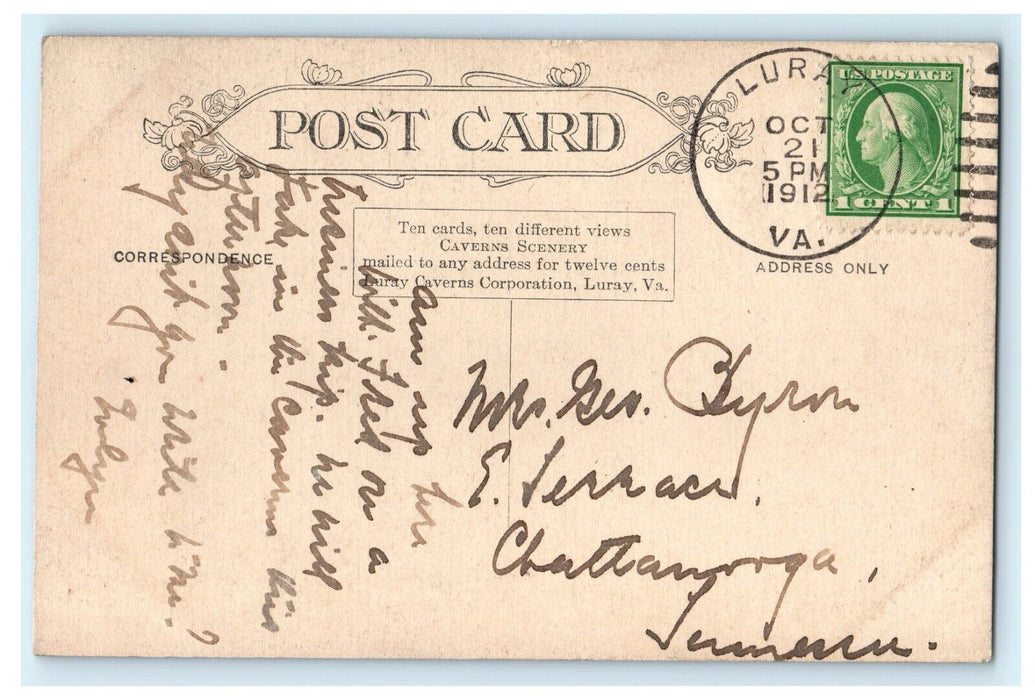 POST CARD
LURAY
OCT
21
5 PM
1912
VA.
U.S. POSTAGE
1 CENT 1
Ten cards, ten different views
CAVERNS SCENERY
mailed to any address for twelve cents
Luray Caverns Corporation, Luray, Va.
CORRESPONDENCE
ADDRESS ONLY
am up here
with Fred on a
business trip. We will
take in the Caverns this
afternoon.
Why don't you write to me?
Mrs. Geo. Byron
E. Terrace.
Chattanooga,
Tennessee.